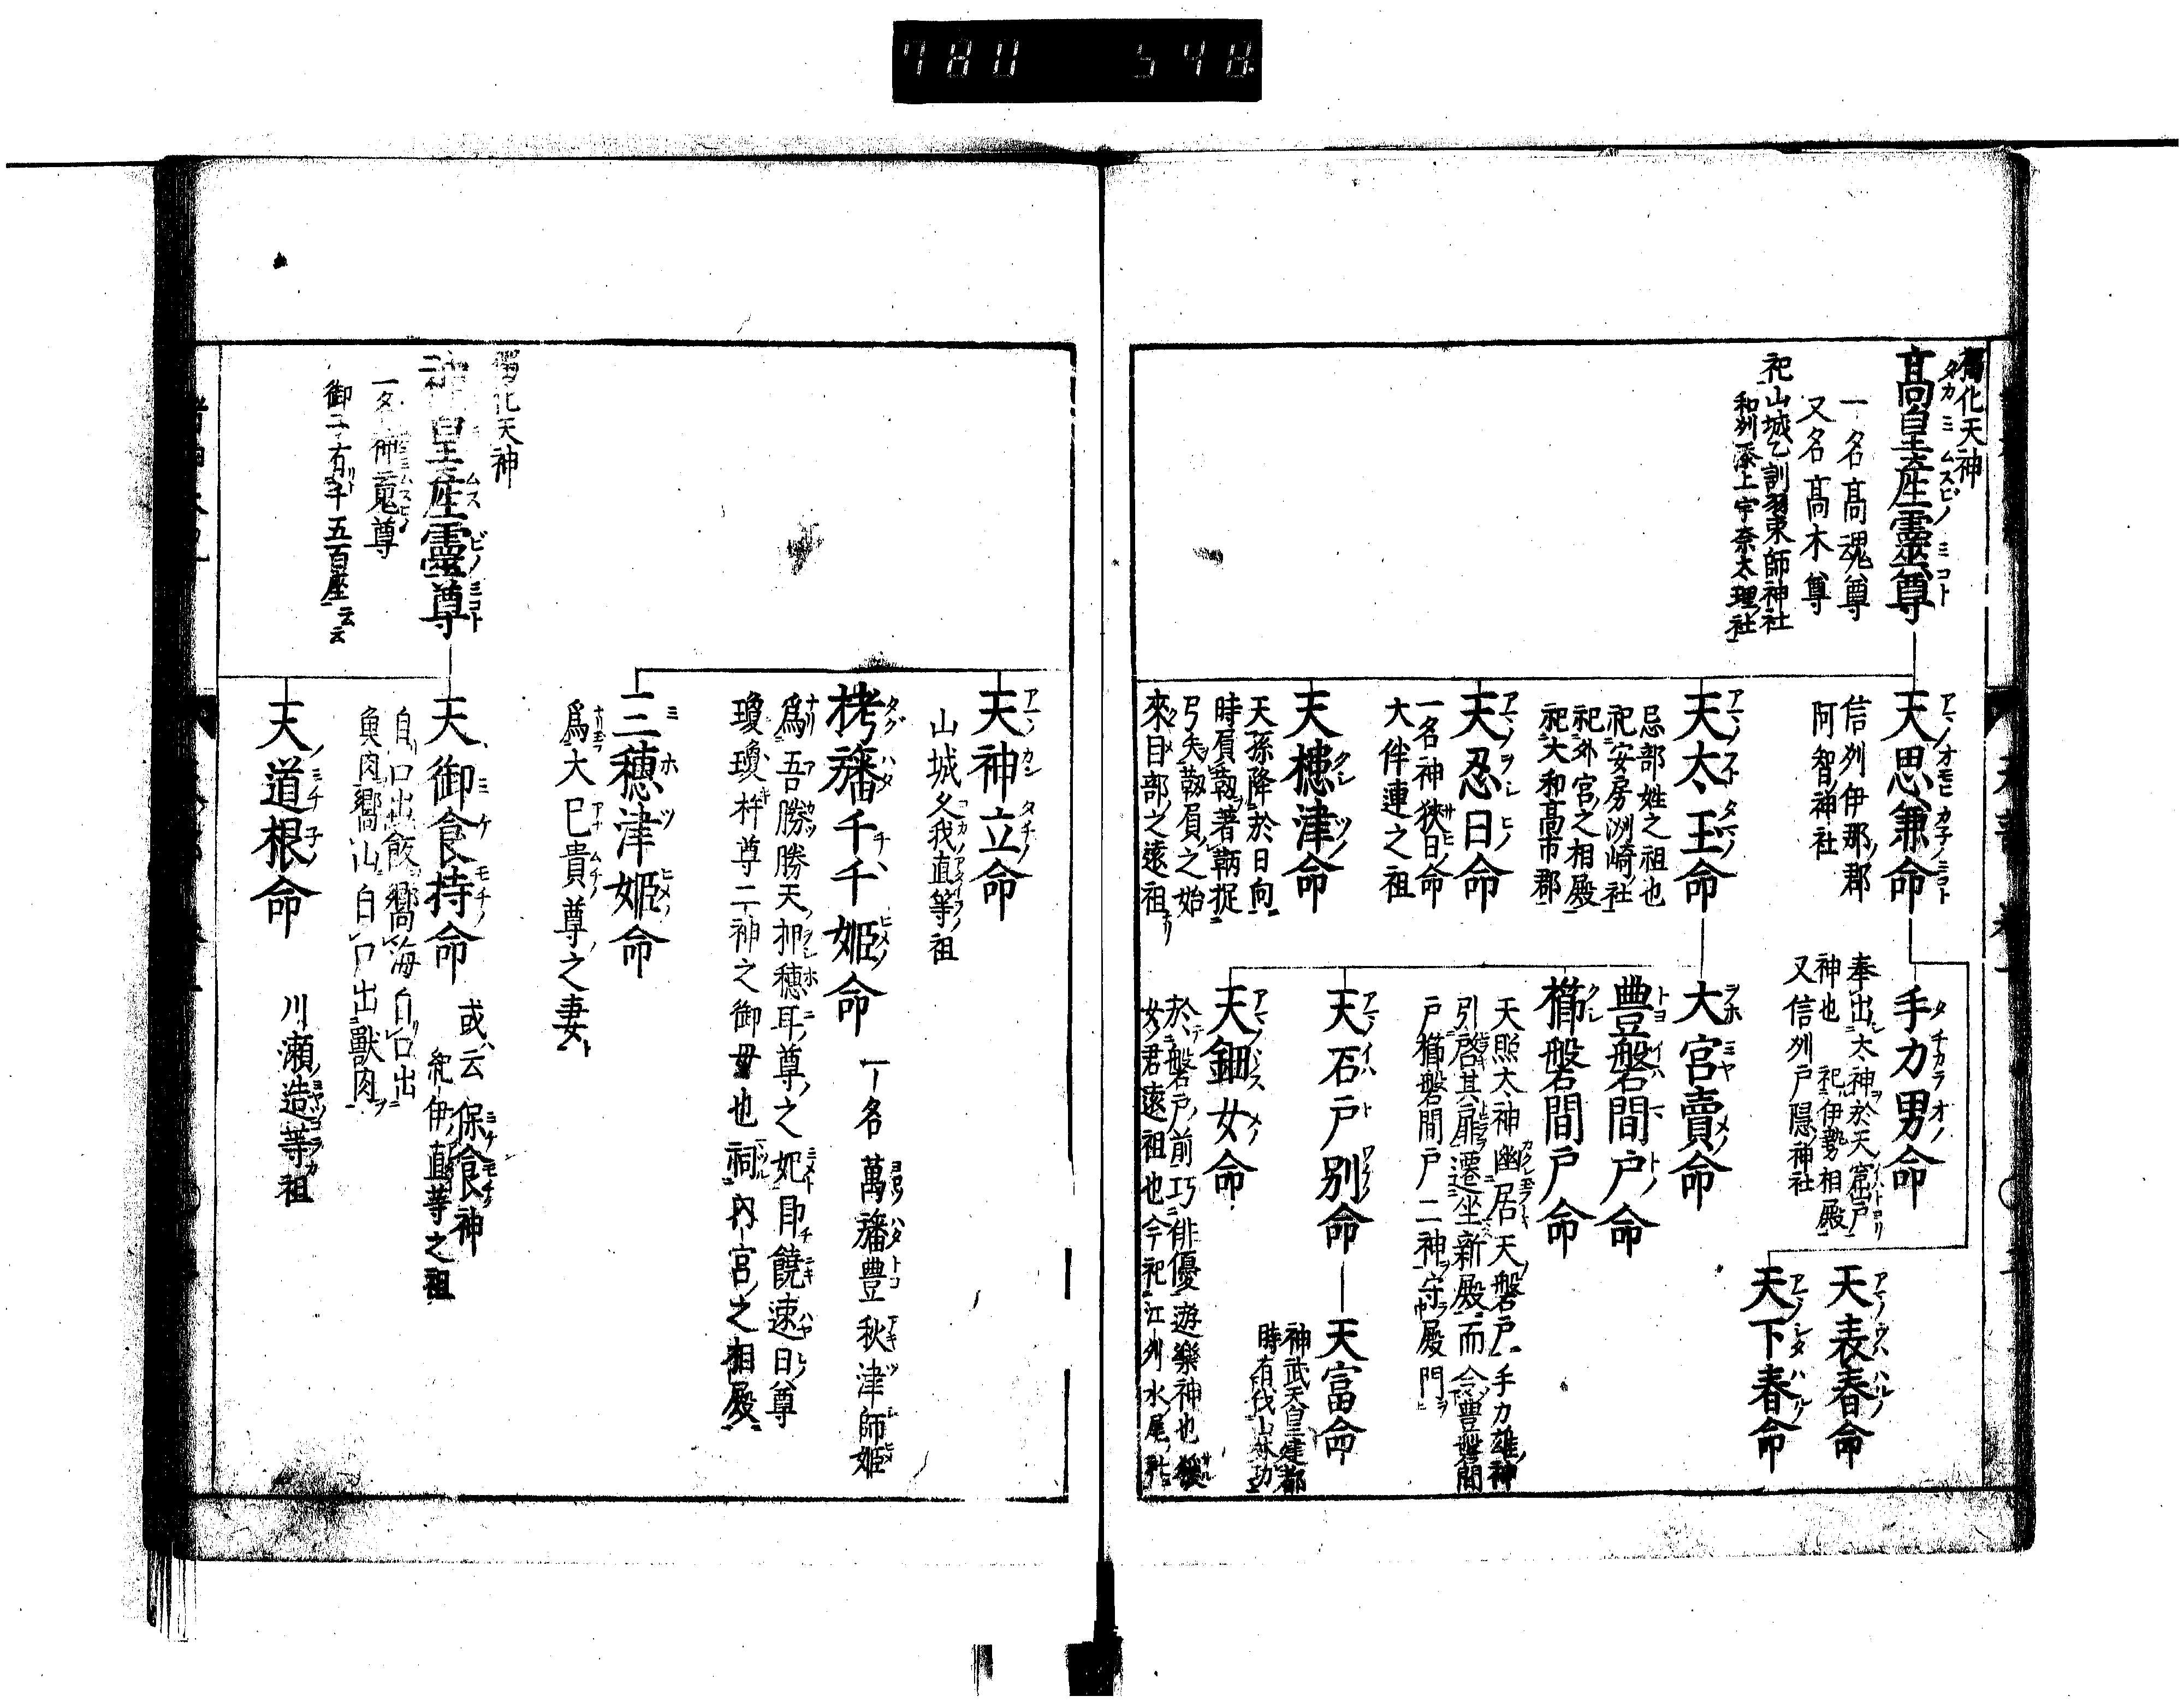 780 548
獨化天神
高皇産靈尊
一名高魂尊
又名高木尊
祀山城乙訓羽束師神社
和刕添上宇奈太理社
天思兼命
信刕伊那郡
阿智神社
手力男命
奉出大神於天窟戸
神也 祀伊勢相殿
又信刕戸隱神社
天表春命
天下春命
天太玉命
忌部姓之祖也
祀安房洲崎社
祀外宮之相殿
祀大和高市郡
大宮賣命
豊磐間戸命
櫛磐間戸命
天照大神幽居天磐戸手力雄神
引啓其扉遷坐新殿而令豊磐間
戸櫛磐間戸二神守殿門
天石戸別命
天富命
神武天皇建都
時有伐山林功
天鈿女命
於磐戸前巧俳優遊樂神也猨
女君遠祖也今祀江刕水尾社
天忍日命
一名神狹日命
大伴連之祖
天槵津命
天孫降於日向
時肩靱著鞆捉
弓矢靱肩之始
來目部之遠祖
天神立命
山城久我直等祖
栲旛千千姬命
一名萬旛豊秋津師姬
爲吾勝勝天押穗耳尊之妃
饒速日尊
瓊瓊杵尊二神之御毋也祠内宮之相殿
三穗津姬命
爲大巳貴尊之妻
獨化天神
神皇産靈尊
一名神䰟尊
御子有千五百座云云
天御食持命
或云保食神
紀伊直等之祖
自口出飯嚮海自口出
魚肉嚮山自口出獸肉
天道根命
川瀬造等祖